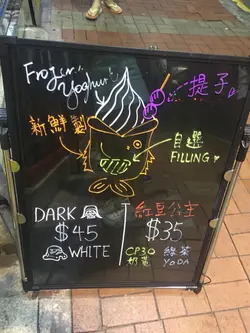 Frozen
Yoghurt
提子
新鮮製
自選
FILLING
DARK
$45
WHITE
紅豆公主
$35
CP30
奶黃
綠茶
YODA